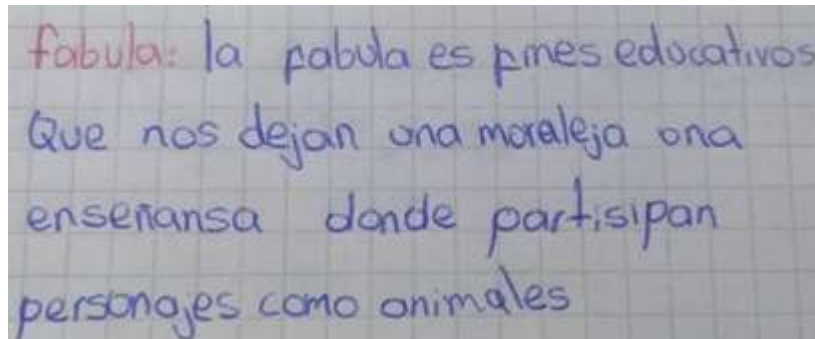 fabula: la fabula es fines educativos
Que nos dejan una moraleja una
enseñansa donde partisipan
personajes como animales